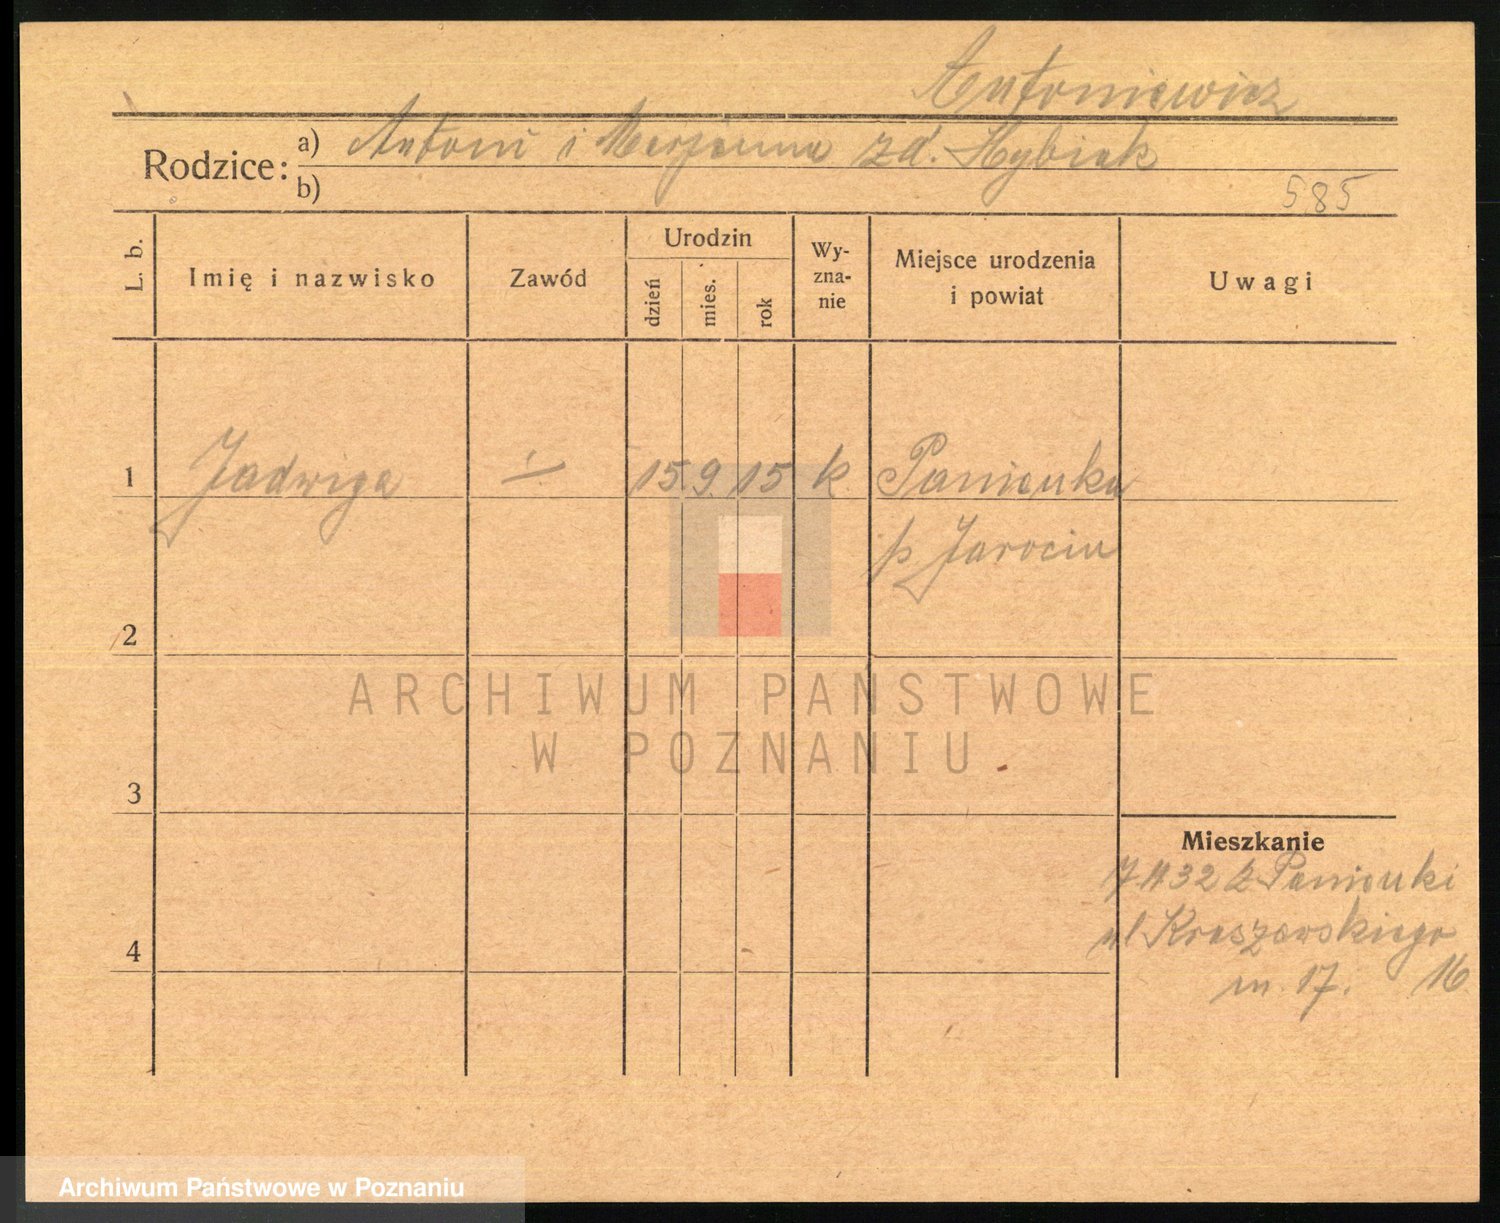 Antoniewicz
Rodzice: a) Antoni i Marjanna zd. Hybiak
b)
585
L. b.
Imię i nazwisko
Zawód
Urodzin
dzień
mies.
rok
Wy-
zna-
nie
Miejsce urodzenia
i powiat
Uwagi
1 Jadwiga 15. 9. 15 k Panienka
p Jarocin
2
3
4
Mieszkanie
32 z Panienki
ul Kraszewskiego
m. 17. 16
ARCHIWUM PAŃSTWOWE
W POZNANIU
Archiwum Państwowe w Poznaniu